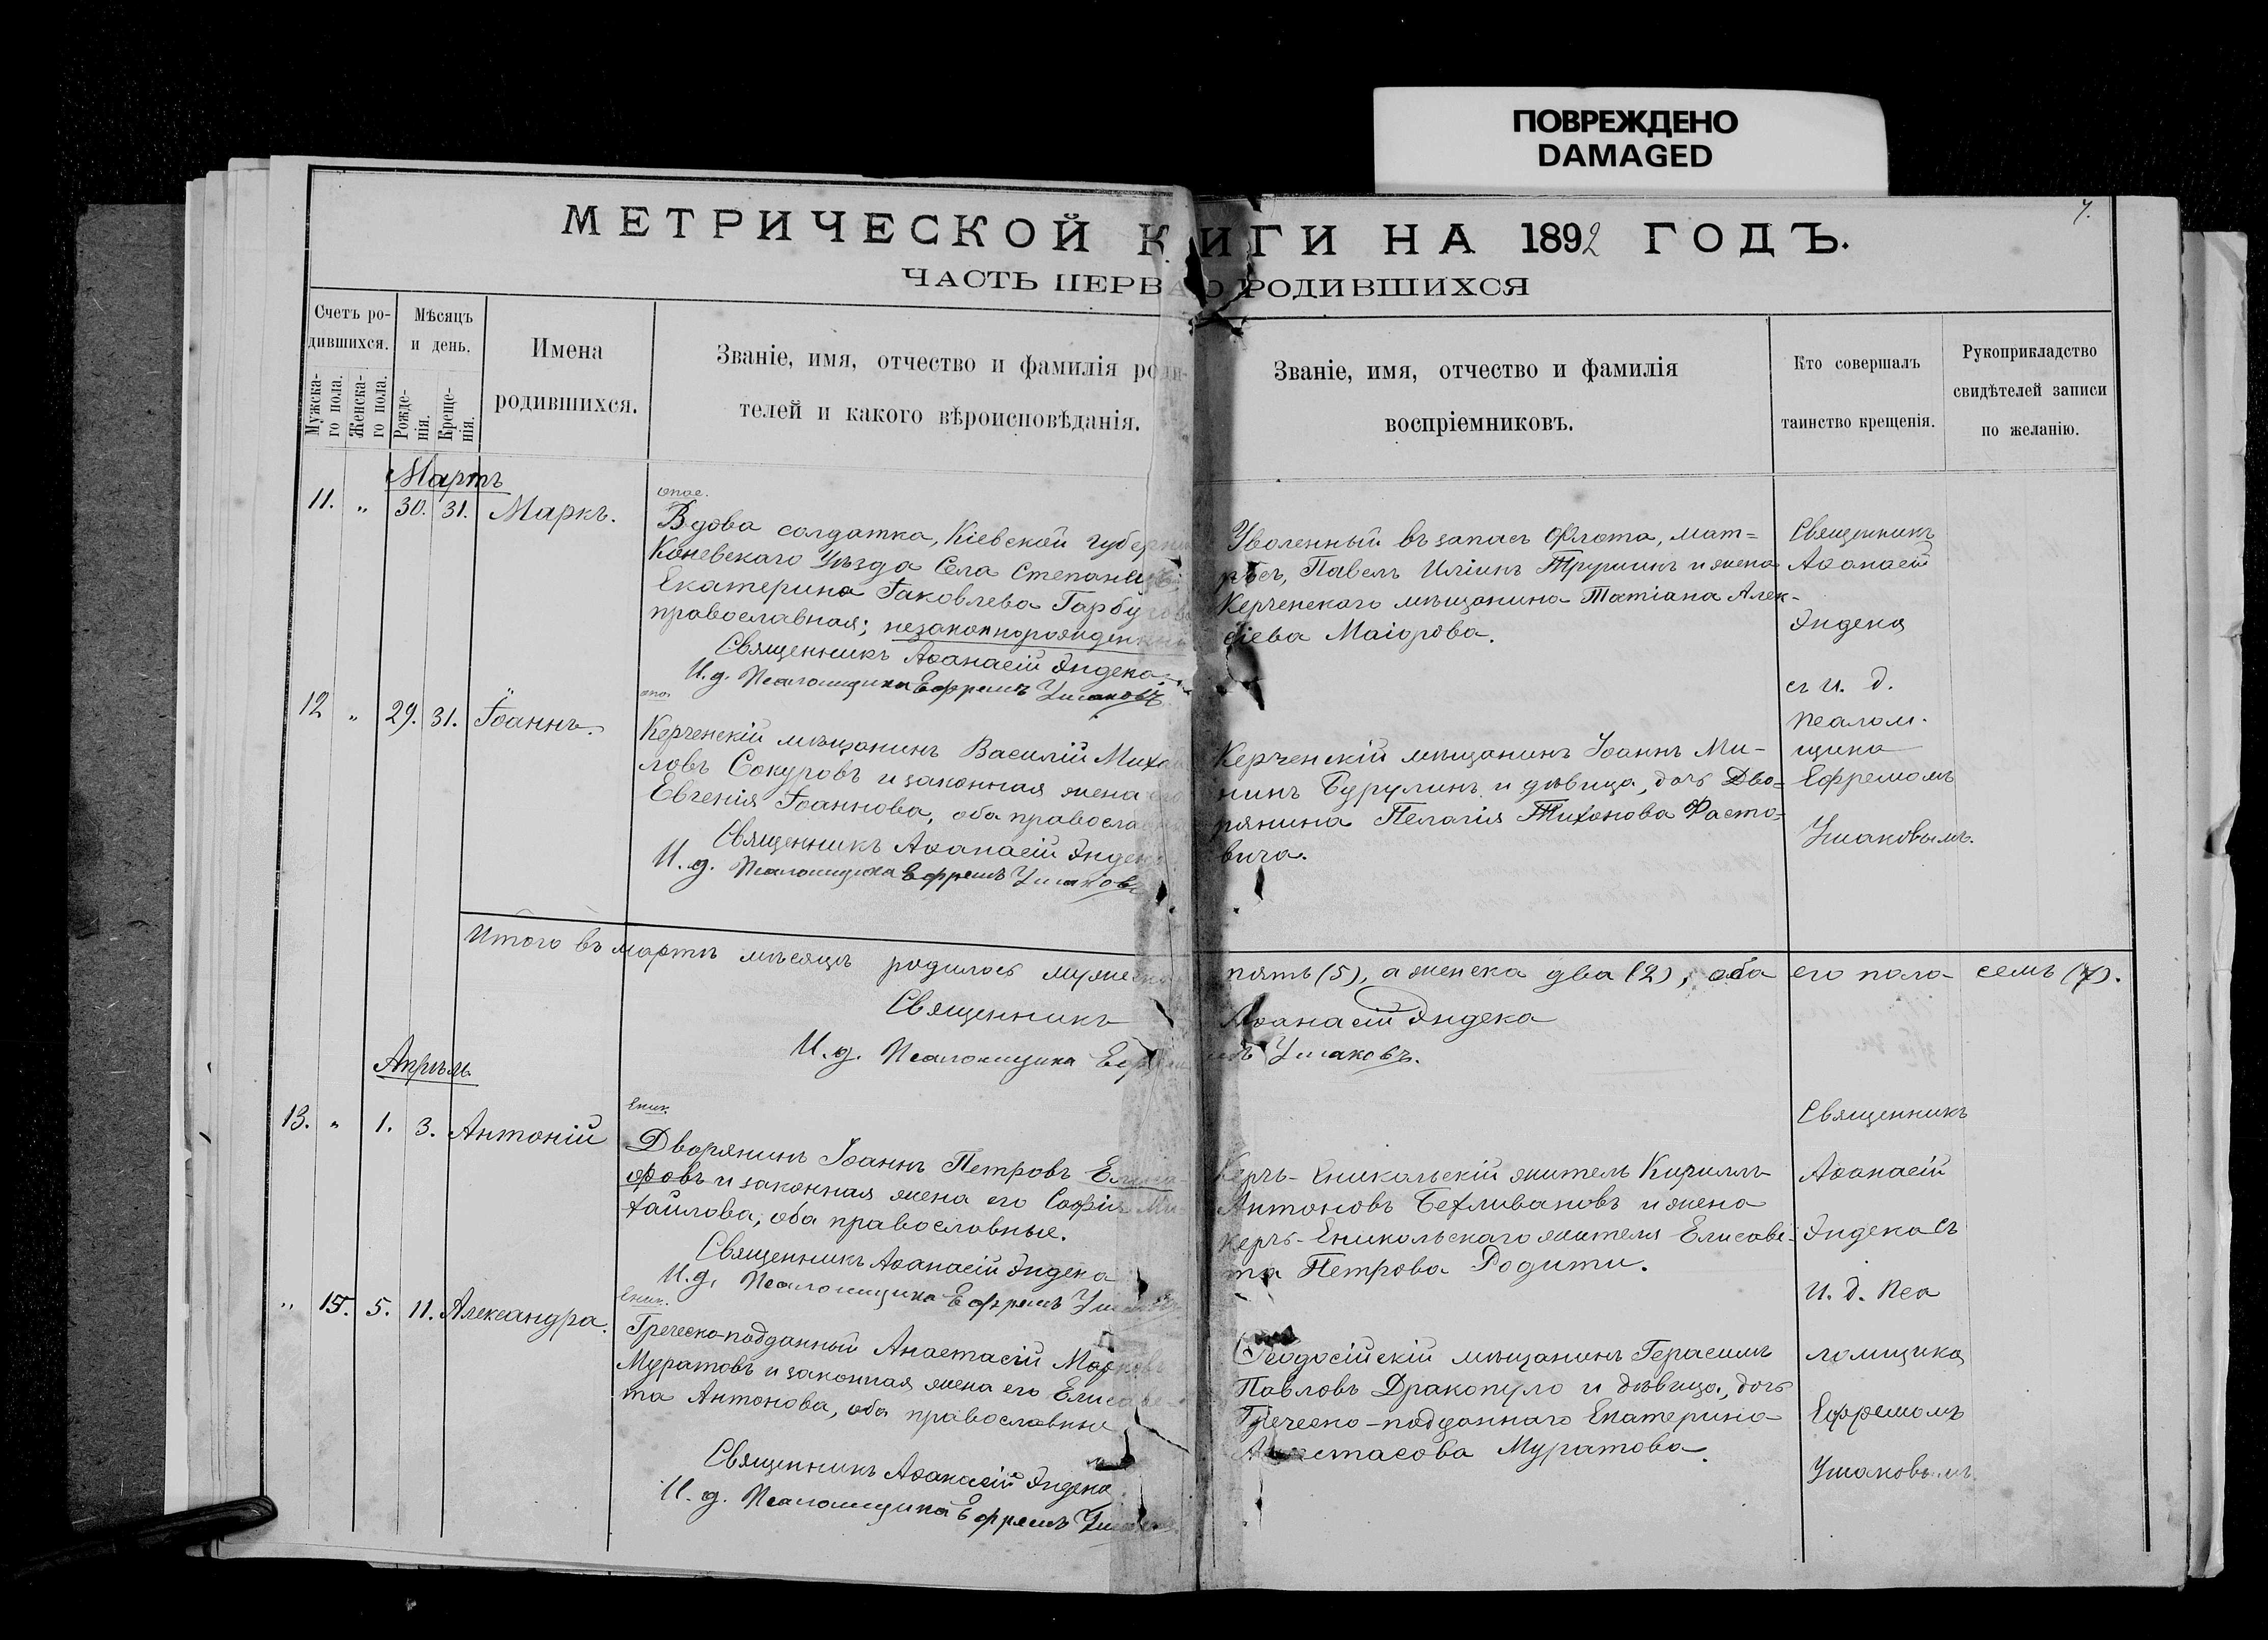 ПОВРЕЖДЕНО
DAMAGED
7.
МЕТРИЧЕСКОЙ КНИГИ НА 1892 ГОДЪ.
ЧАСТЬ ПЕРВАЯ О РОДИВШИХСЯ
Счетъ ро-
дившихся.
Мужска-
го пола.
Женска-
го пола.
Мѣсяцъ
и день.
Рожде-
нія.
Креще-
нія.
Имена
родившихся.
Званіе, имя, отчество и фамилія роди-
телей и какого вѣроисповѣданія.
Званіе, имя, отчество и фамилія
воспріемниковъ.
Кто совершалъ
таинство крещенія.
Рукоприкладство
свидѣтелей записи
по желанію.
Мартъ
11. " 30. 31. Маркъ.
Вдова солдатка, Кіевской губерніи
Каневскаго Уѣзда Села
Екатерина Іаковлева
православная; незаконнорожденный
Священникъ Аѳанасій Эндека
И. д. Псаломщика Ефремъ Ушаковъ
Уволенный въ запасъ Флота, мат-
росъ, Павелъ Иліинъ и жена
Керченскаго мѣщанина Татіана Алек-
сіева Маіорова.
Священникъ
Аѳанасій
Эндека
съ и. д.
псалом-
щика
Ефремомъ
Ушаковымъ.
12 " 29. 31. Іоаннъ.
Керченскій мѣщанинъ Василій Михаи
ловъ Сокуровъ и законная жена его
Евгенія Іоаннова, оба православны
Священникъ Аѳанасій Эндека
И. д. Псаломщика Ефремъ Ушаковъ
Керченскій мѣщанинъ Іоаннъ Ми-
нинъ Бурулинъ и дѣвица, дочь Дво-
рянина Пелагія Тихонова Фасто-
вича.
Итого въ мартѣ мѣсяцѣ родилось мужеска пять (5), а женска два (2), обо его пола семь (7).
Священникъ Аѳанасій Эндека
И. д. Псаломщика Ефремъ Ушаковъ.
Апрѣль
13. " 1. 3. Антоній
Еник.
Дворянинъ Іоаннъ Петровъ
фовъ и законная жена его Софія Ми
хайлова, оба православные.
Священникъ Аѳанасій Эндека
И. д. Псаломщика Ефремъ Ушаковъ
Керчь-Еникольскій житель Кириллъ
Антоновъ Бехливановъ и жена
керчь-Еникольскаго жителя Елисаве-
та Петрова Родити.
Священникъ
Аѳанасій
Эндека съ
и. д. пса
ломщика
Ефремомъ
Ушаковымъ.
" 15. 5. 11. Александра.
Еник.
Греческо-подданный Анастасій Марковъ
Муратовъ и законная жена его Елисаве-
та Антонова, оба православные
Священникъ Аѳанасій Эндека
И. д. Псаломщика Ефремъ Ушаковъ
Ѳеодосійскій мѣщанинъ Герасимъ
Павловъ Дракопуло и дѣвица, дочь
Греческо-подданнаго Екатерина
Анастасова Муратова.